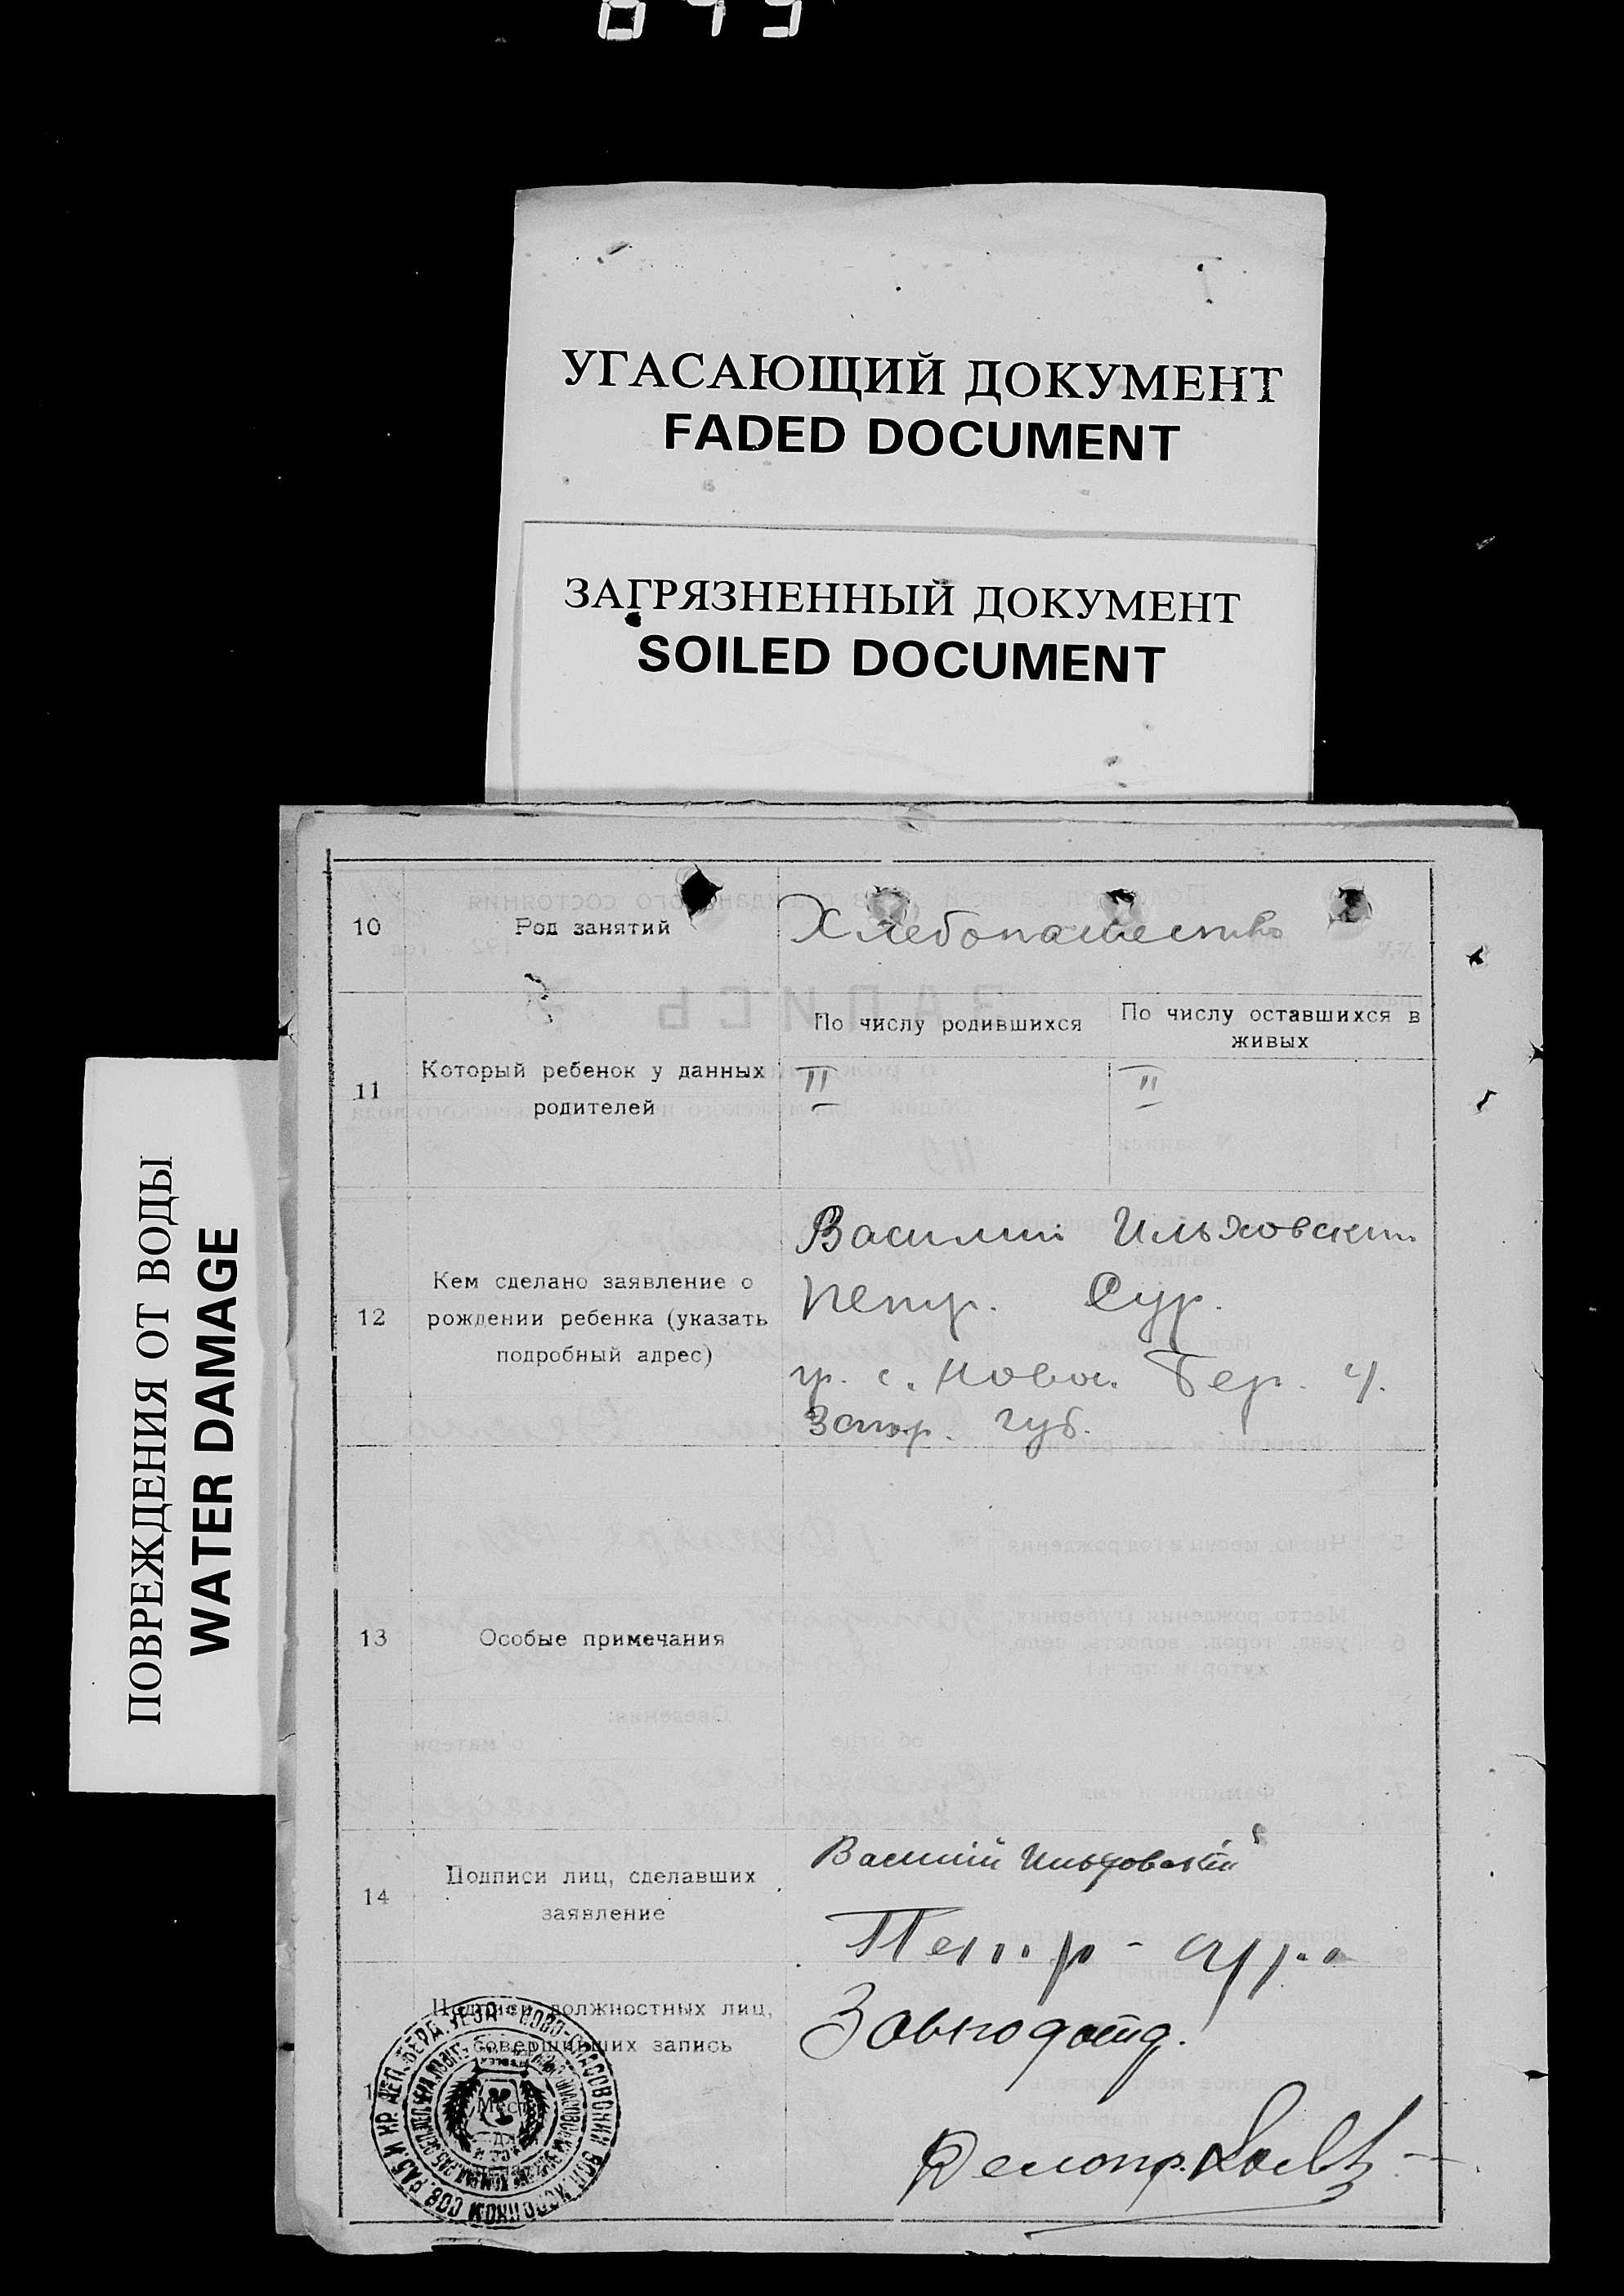 УГАСАЮЩИЙ ДОКУМЕНТ
FADED DOCUMENT
ЗАГРЯЗНЕННЫЙ ДОКУМЕНТ
SOILED DOCUMENT
ПОВРЕЖДЕНИЯ ОТ ВОДЫ
WATER DAMAGE
10 Род занятий Хлебопашество
11 Который ребенок у данных родителей
По числу родившихся
По числу оставшихся в живых
II II
12 Кем сделано заявление о
рождении ребенка (указать
подробный адрес)
Василий Ильховский
Петр. Сур.
гр. с. Ново. Бер. у.
Запор. губ.
13 Особые примечания
14 Подписи лиц, сделавших
заявление
Василий Ильховский
Петр
Подписи должностных лиц,
совершивших запись
Завподотд.